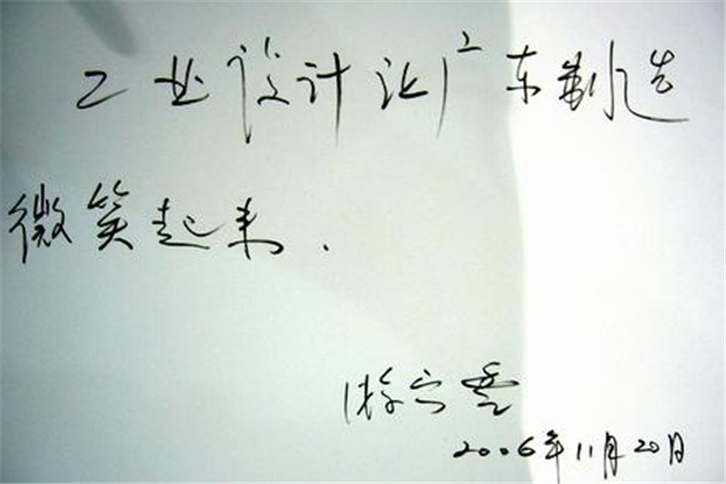 工业设计让广东制造
微笑起来.
2006年11月20日